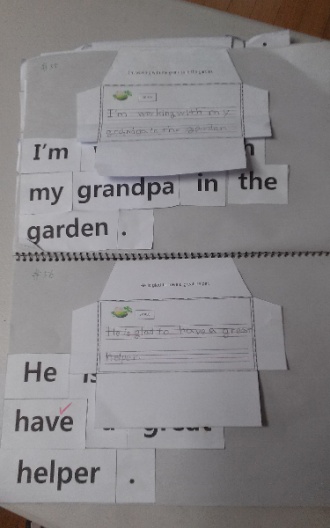 I'm working with my
grandpa in the garden
I'm h
my grandpa in the
garden .
He is glad to have a great
helper
He is
have a great
helper .